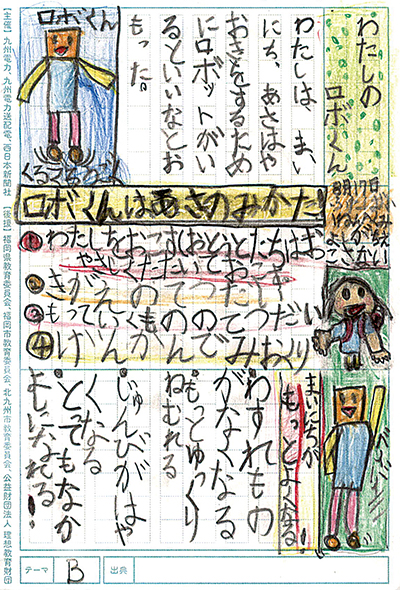 わたしの
ロボくん
8月17日
わたしは、まい
にち、あさはや
おきをするため
にロボットがい
るといいなとお
もった。
ロボくん
ロボくんはあさのみかた!
① わたしをおこす(おとうとたちはお
こさない
②
③ もって
④
まいにちが
もっとよくなる!
・わすれもの
がなくなる
・もっとゆっくり
ねむれる
・じゅんびがはや
くなる
・とってもなか
よしになれる!
テーマ B 出典
【主催】九州電力、九州電力送配電、西日本新聞社 【後援】福岡県教育委員会、福岡市教育委員会、北九州市教育委員会、公益財団法人 理想教育財団